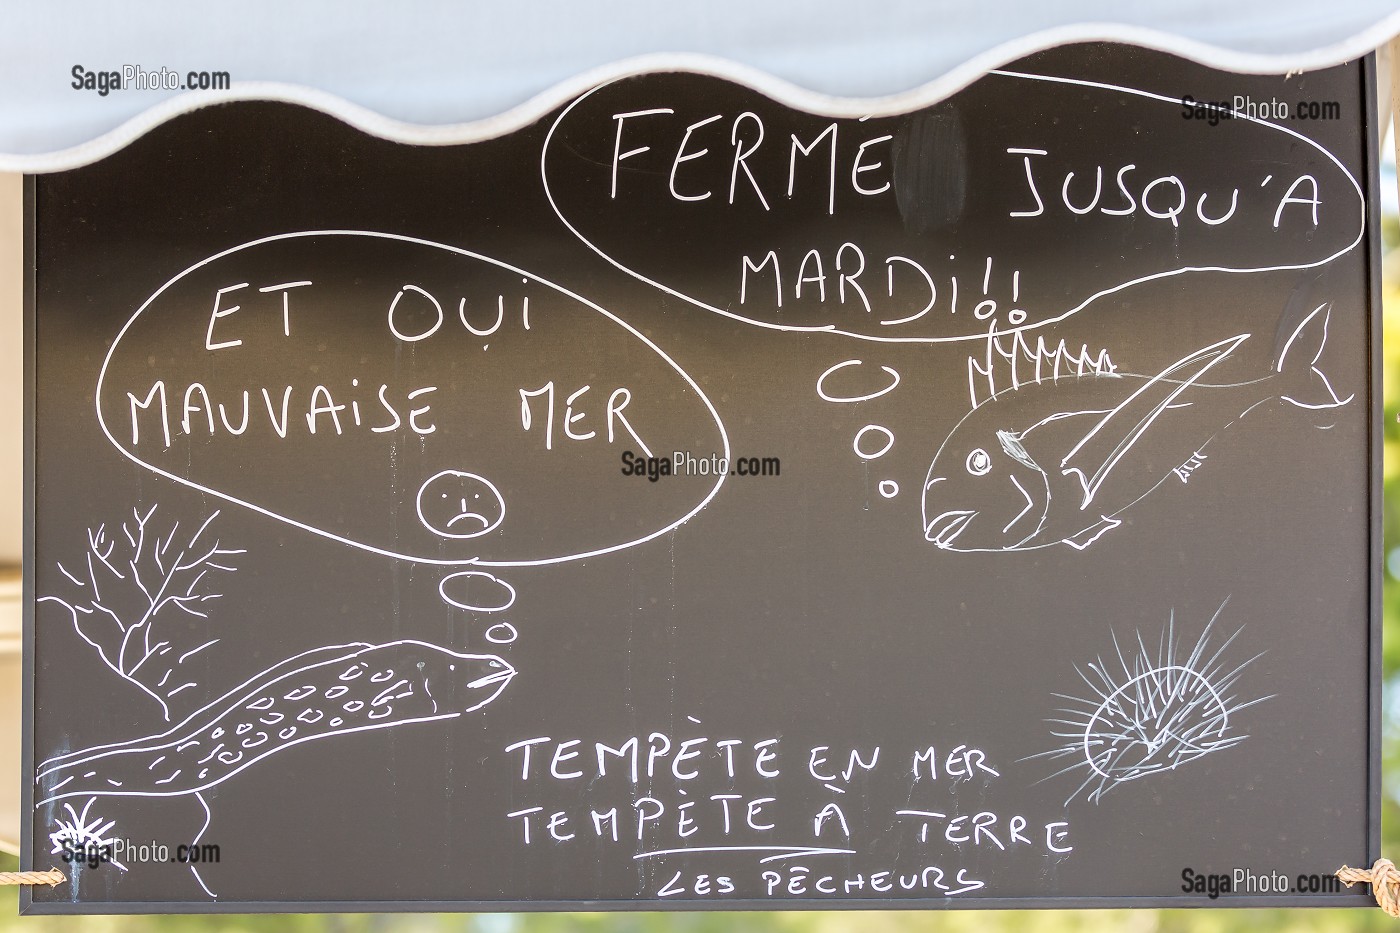 SagaPhoto.com
SagaPhoto.com
FERMÉ JUSQU'A
MARDi!!
ET OUi
MAUVAiSE MER
SagaPhoto.com
TEMPÈTE EN MER
TEMPÈTE À TERRE
LES PÊCHEURS
SagaPhoto.com
SagaPhoto.com